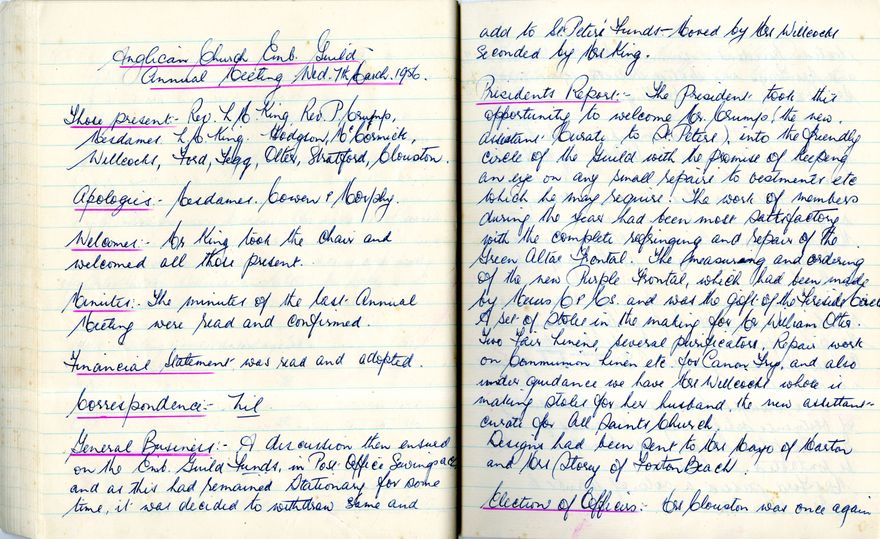 Anglican Church Emb. Guild
Annual Meeting Wed. 7th March. 1956.
Those present:- Rev. L Mc King, Rev. P. Crump,
Mesdames L Mc King - Hodgson, McCormick,
Willcocks, Ford, Fegg, Otter, Stratford, Clouston.
Apologies - Mesdames. Cowen & Morphy.
Welcomes:- Mr King took the chair and
welcomed all those present.
Minutes:- The minutes of the last Annual
Meeting were read and confirmed.
Financial Statement was read and adopted.
Correspondence:- Nil
General Business:- A discussion then ensued
on the Emb. Guild Funds, in Post Office Savings a/c
and as this had remained Stationary for some
time, it was decided to withdraw same and
add to St. Peters' Funds - Moved by Mrs Willcocks
Seconded by Mrs King.
Presidents Report:- The President took this
opportunity to welcome Mr. Crump (the new
assistant Curate to St. Peters), into the friendly
circle of the Guild with the promise of keeping
an eye on any small repairs to vestments etc
which he may require. The work of members
during the year had been most satisfactory
with the complete refringing and repair of the
Green Altar Frontal. The measuring and ordering
of the new Purple Frontal, which had been made
by and was the gift of the Fireside Circle
A set of stoles in the making for Mr William Otter.
Two Fair Linens, several purificators, Repair work
on Communion Linen etc. for Canon Fry, and also
under guidance we have Mrs Willcocks whole is
making stoles for her husband, the new assistant-
curate for All Saints Church.
Designs had been sent to Mrs Mayo of Marton
and Mrs Storey of Foxton Beach.
Election of Officers:- Mrs Clouston was once again